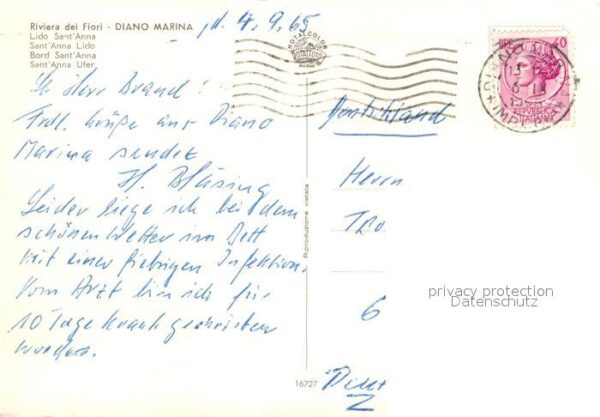 Riviera dei Fiori - DIANO MARINA
Lido Sant'Anna
Sant'Anna Lido
Bord Sant'Anna
Sant'Anna Ufer
d. 4.9.65
Herr Brand!
Frdl. Grüße aus Diano
Marina sendet
H. Bläsing
Leider liege ich bei dem
schönen Wetter im Bett
mit einer fiebrigen Infektion.
Vom Arzt bin ich für
10 Tage krank geschrieben
worden.
ROTALCOLOR
Riproduzione vietata
16727
Deutschland
Herrn
6
privacy protection
Datenschutz